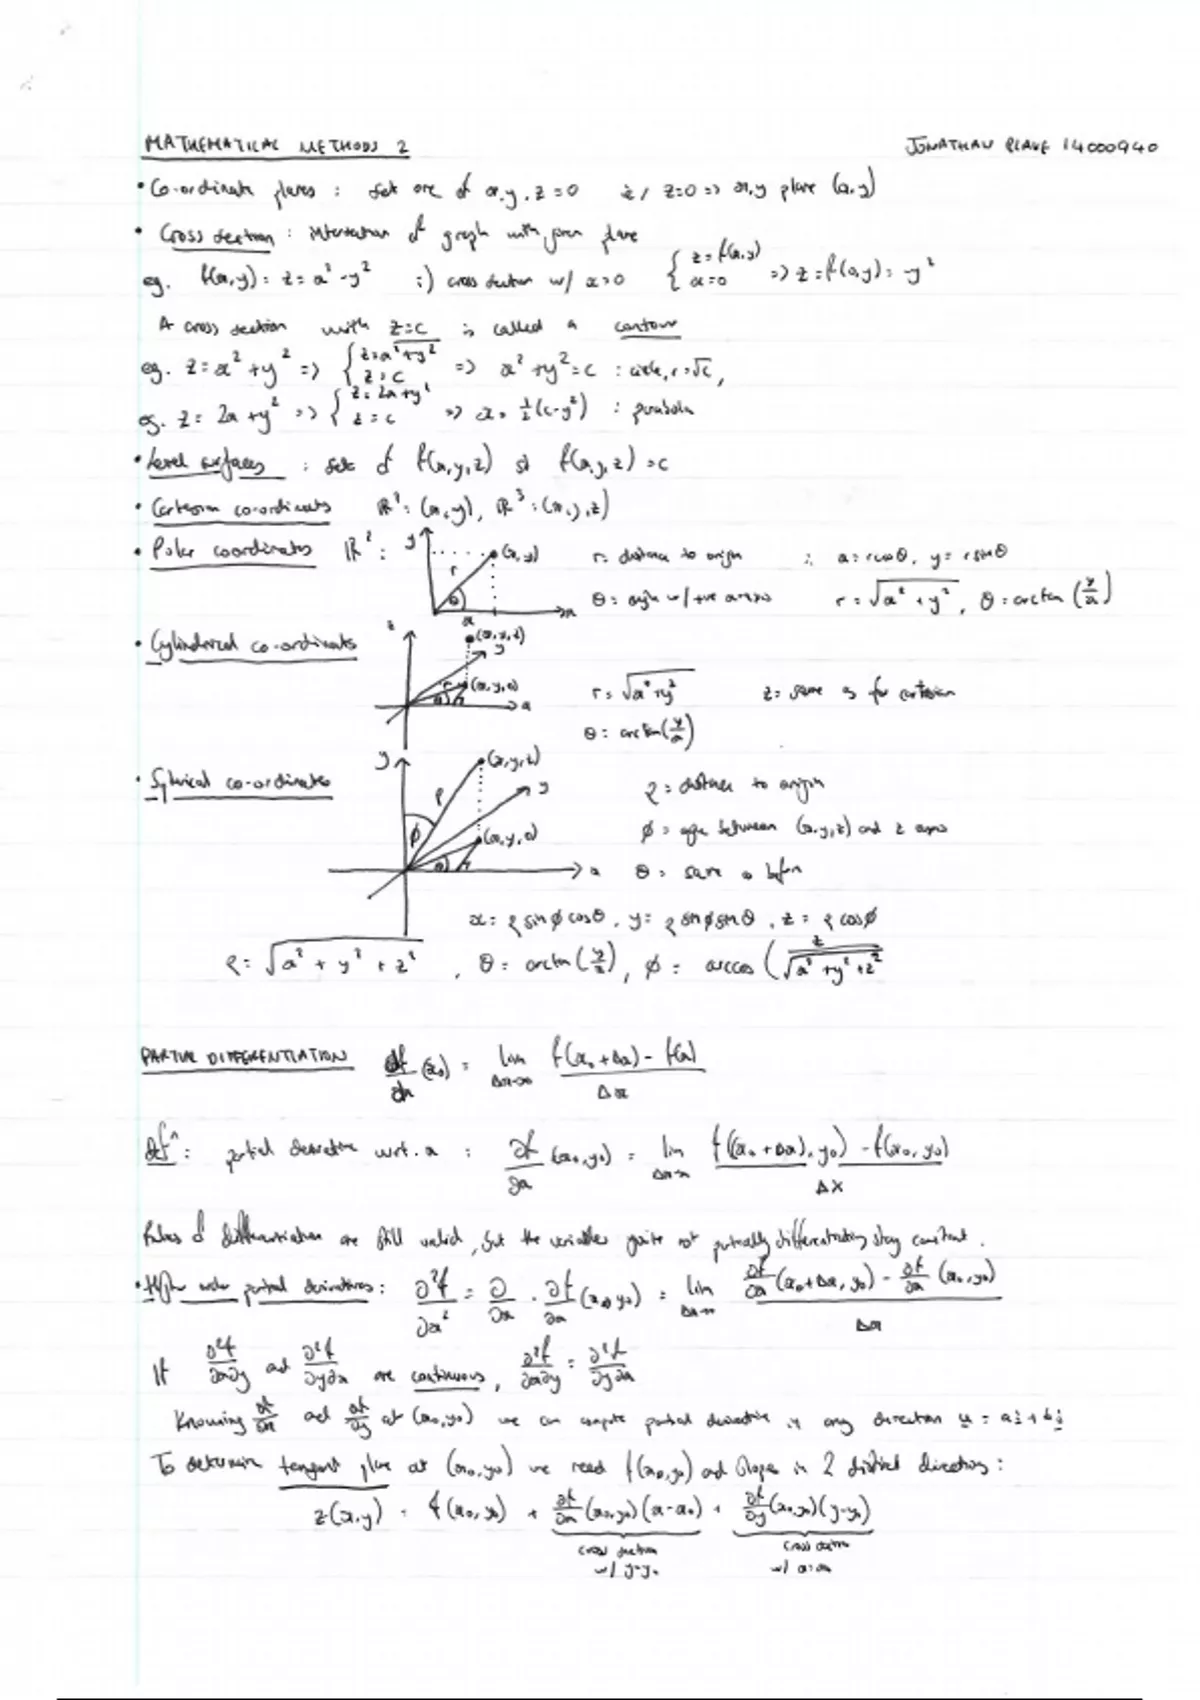 MATHEMATICAL METHODS 2
JONATHAN 14000940
• Co-ordinate planes : set one of x, y, z = 0 ie/ z=0 => x,y plane (x,y)
• Cross section : intersection of graph with given plane
eg. f(x,y) = z = x² - y² :) cross section w/ x=0 { z = f(x,y) x=0 => z = f(0,y) = -y²
A cross section with z=c is called a contour
eg. z = x² + y² => { z=x²+y² z=c => x² + y² = c : circle, r=√c,
eg. z = 2x + y² => { z=2x+y² z=c => x = ½(c-y²) : parabola
• Level surfaces : sets of f(x,y,z) st f(x,y,z) = c
• Cartesian co-ordinates ℝ² : (x,y), ℝ³ : (x,y,z)
• Polar coordinates ℝ² : y (x,y) r θ x x r = distance to origin ∴ x = rcosθ, y = rsinθ
θ = angle w/ +ve x-axis r = √x² + y², θ = arctan (y/x)
• Cylindrical co-ordinates z (x,y,z) y (x,y,0) r θ x r = √x²+y² z = same as for cartesian
θ = arctan(y/x)
• Spherical co-ordinates y (x,y,z) y ρ ϕ (x,y,0) θ r x ρ = distance to origin
ϕ = angle between (x,y,z) and z axis
θ = same as before
x = ρ sinϕ cosθ, y = ρ sinϕ sinθ, z = ρ cosϕ
ρ = √x² + y² + z², θ = arctan (y/x), ϕ = arccos (z/√x² + y² + z²
PARTIAL DIFFERENTIATION df/dx (x₀) = lim Δx→0 f(x₀+Δx) - f(x) / Δx
Defⁿ : partial derivative wrt. x : ∂f/∂x (x₀,y₀) = lim Δx→0 f((x₀+Δx),y₀) - f(x₀,y₀) / Δx
Rules of differentiation are still valid, but the variables you're not partially differentiating stay constant.
• Higher order partial derivatives : ∂²f/∂x² = ∂/∂x · ∂f/∂x (x₀,y₀) = lim Δx→0 ∂f/∂x (x₀+Δx, y₀) - ∂f/∂x (x₀,y₀) / Δx
If ∂²f/∂x∂y and ∂²f/∂y∂x are continuous, ∂²f/∂x∂y = ∂²f/∂y∂x
Knowing ∂f/∂x and ∂f/∂y at (x₀,y₀) we can compute partial derivative in any direction u = ai + bj
To determine tangent plane at (x₀,y₀) we need f(x₀,y₀) and slopes in 2 distinct directions :
z(x,y) = f(x₀,y₀) + ∂f/∂x (x₀,y₀)(x-x₀) + ∂f/∂y (x₀,y₀)(y-y₀)
cross section w/ y=y₀ cross section w/ x=x₀